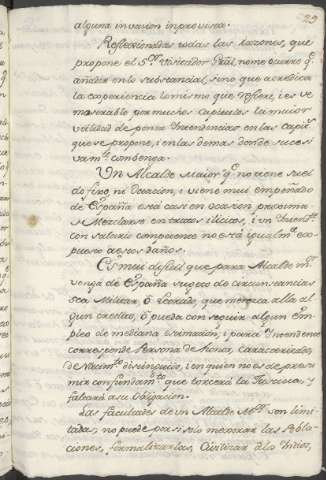 29
alguna invasion inprovisa.
Reflexionadas todas las razones, que
propone el S.or Visitador Gral, no me ocurre q.e
añadir en lo substancial, sino que acredita
la experiencia lo mismo que refiere, i es ve
mejorable por muchos capitulos la maior
utilidad de poner Yntendencias en las Capit.s
que se propone, i en las demas donde sucesi
vam.te convenga.
Un Alcalde Maior q.e no tiene suel
do fixo, ni Dotacion, i viene mui empeñado
de España está casi en ocasion proxima
de Mezclarse en tratos ilicitos, i un Yntend.te
con salario competente no está igualm.te ex
puesto a estos daños.
Es mui dificil que para Alcalde M.or
venga de España sugeto de circunstancias
sea Militar, ó Letrado, que merezca allá al
gun credito, ó pueda conseguir algun Em
pleo de mediana estimacion; i para Yntendente
corresponde Persona de Honor, caracterizada,
de Nacim.to distinguido, i en quien no es de presu
mir con fundam.to que torcerá la Justicia, y
faltará a su obligacion.
Las facultades de un Alcalde M.or son limi
tadas; no puede por si solo mejorar las Pobla
ciones, formalizarlas, Civilizar a los Yndios,